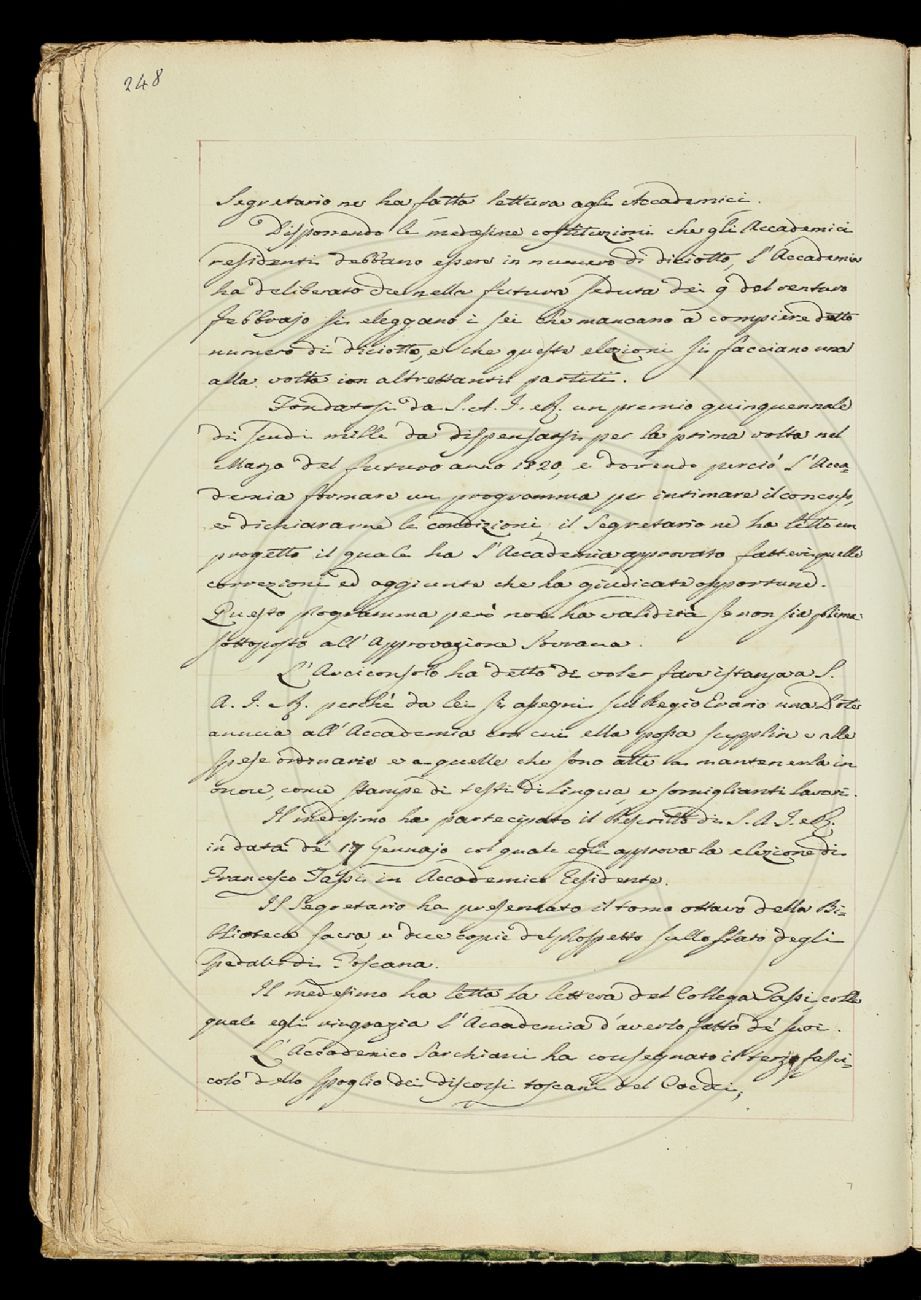 248
Segretario ne ha fatta lettura agli Accademici.
Disponendo le medesime costituzioni che gli Accademici
residenti debbano essere in numero di diciotto, l'Accademia
ha deliberato che nella futura seduta dei 9 del venturo
febbrajo si eleggano i sei che mancano a compiere detto
numero di diciotto, e che queste elezioni si facciano una
alla volta con altrettanti partiti.
Fondatosi da S. A. I. e R. un premio quinquennale
di scudi mille da dispensarsi per la prima volta nel
Marzo del futuro anno 1820, e dovendo perciò l'Acca=
demia formare un programma per intimare il concorso,
e dichiararne le condizioni, il Segretario ne ha letto un
progetto il quale ha l'Accademia approvato fattevi quelle
correzioni ed aggiunte che ha giudicate opportune.
Questo programma però non ha validità se non sia prima
sottoposto all'Approvazione Sovrana.
L'Arciconsolo ha detto di voler fare istanza a S.
A. I. e R. perchè da lei si assegni sul Regio Erario una Dote
annua all'Accademia con cui ella possa supplire e alle
spese ordinarie e a quelle che sono atte a mantenerla in
onore, come stampe di testi di Lingua, e somiglianti lavori.
Il medesimo ha partecipato il Rescritto di S. A. I. e R.
in data de' 17 Gennajo col quale egli approva la elezione di
Francesco Tassi in Accademico Residente.
Il Segretario ha presentato il tomo ottavo della Bi=
blioteca sacra, e dice copie del Prospetto sullo stato degli
spedali di Toscana.
Il medesimo ha letta la lettera del Collega Tassi, colla
quale egli ringrazia l'Accademia d'averlo fatto de' suoi.
L'Accademico Sarchiani ha consegnato il terzo fasci=
colo dello spoglio dei discorsi toscani del Cocchi,